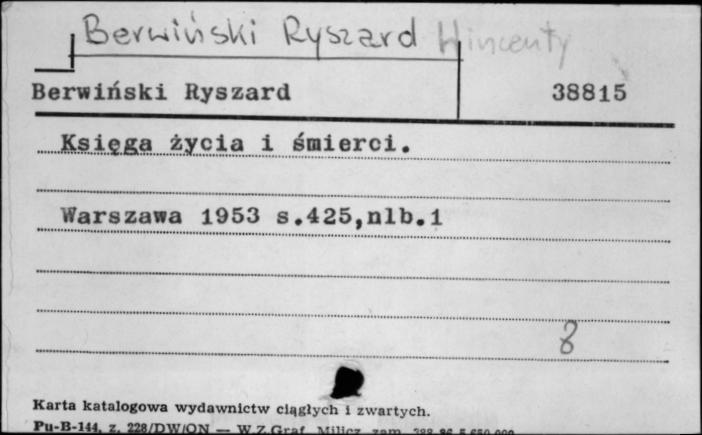 Berwiński Ryszard Wincenty
Berwiński Ryszard 38815
Księga życia i śmierci.
Warszawa 1953 s.425,nlb.1
8
Karta katalogowa wydawnictw ciągłych i zwartych.
Pu-B-144, z. 228/DW/ON — W.Z.Graf. Milicz zam.